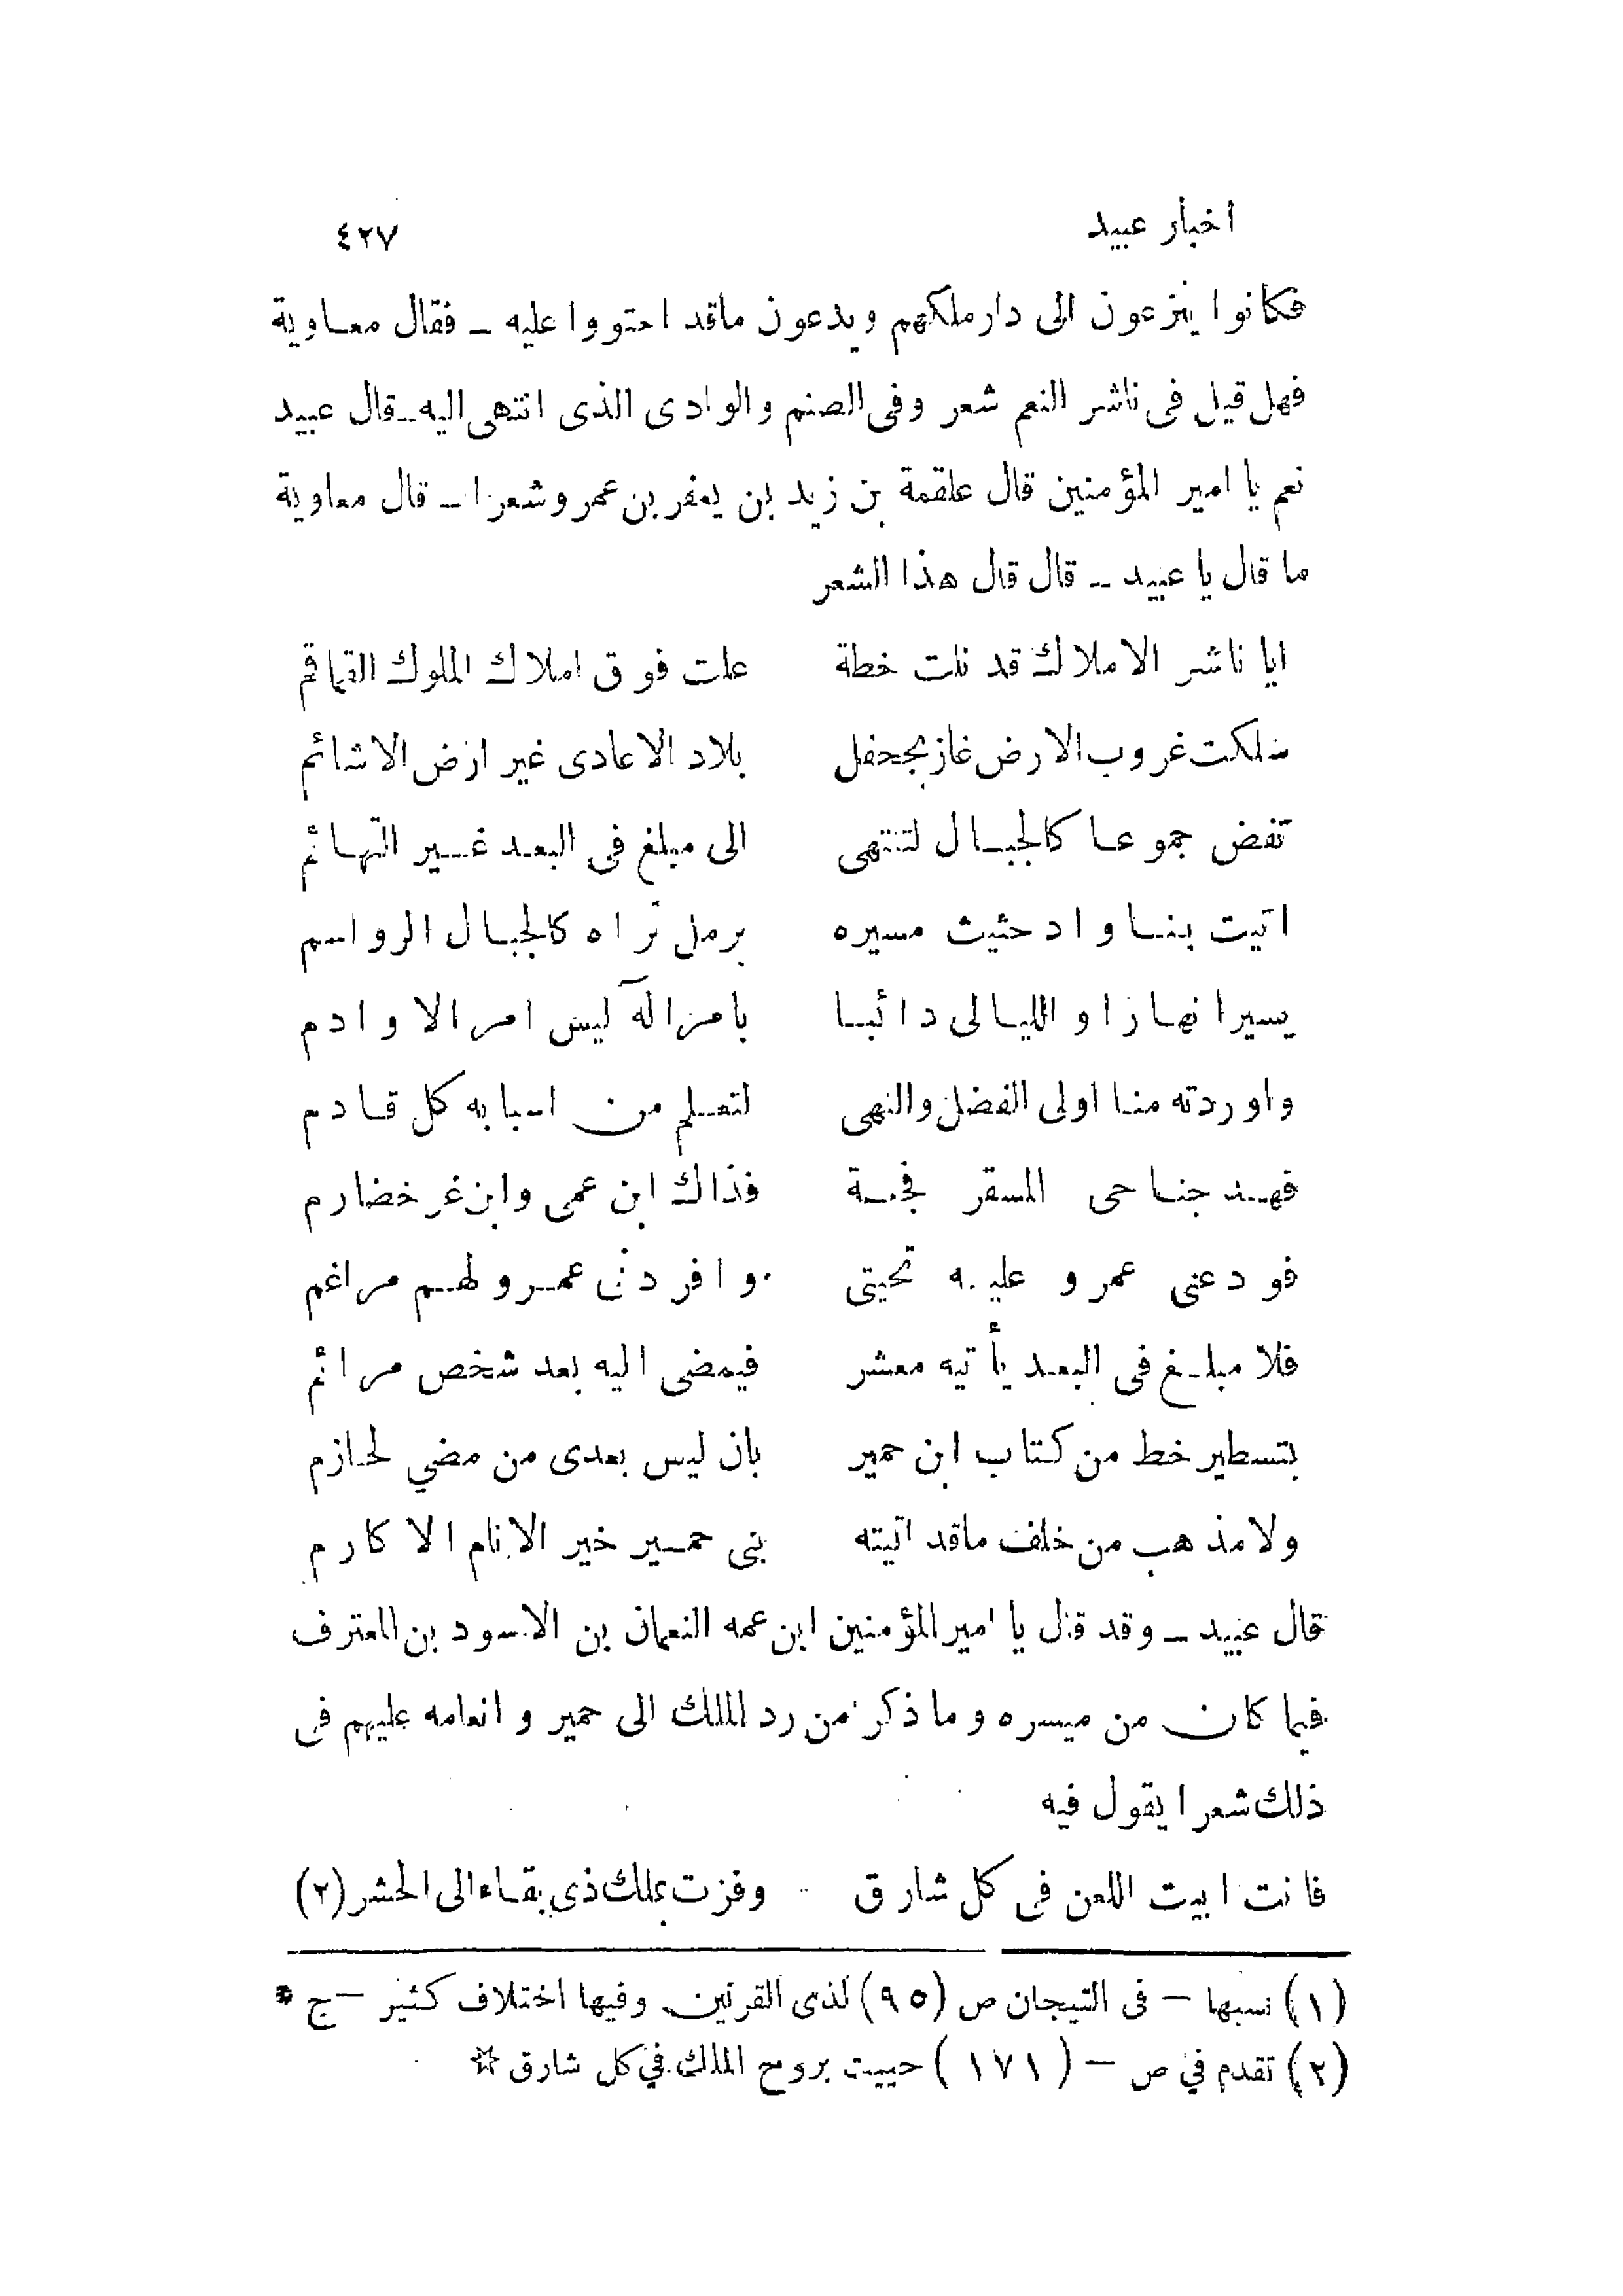 اخبار عبيد ٤٢٧
فكانوا ينزعون الى دار ملكهم ويدعون ماقد احتووا عليه ــ فقال معاوية
فهل قيل فى ناشر النعم شعر وفى الصنم والوادى الذى انتهى اليه ــ قال عبيد
نعم يا امير المؤمنين قال علقمة بن زيد بن يعفر بن عمرو شعرا ــ قال معاوية
ما قال يا عبيد ــ قال قال هذا الشعر
ايا ناشر الاملاك قد نلت خطة علت فوق املاك الملوك القماقم
سلكت غروب الارض غاز بجحفل بلاد الاعادى غير ارض الاشائم
تفض جموعا كالجبال لتنتهى الى مبلغ فى البعد غير التهائم
اتيت بنا واد حثيث مسيره برمل تراه كالجبال الرواسم
يسير انهارا والليالى دائبا بامر اله ليس امر الاوادم
واوردته منا اولى الفضل والنهى لتعلم من اسبابه كل قادم
فهد جناحى المسقر فجة فذاك ابن عمى وابن غر خضارم
فودعنى عمرو عليه تحيتى وافردنى عمرو لهم مراغم
فلا مبلغ فى البعد يأتيه معشر فيمضى اليه بعد شخص مرائم
بتسطير خط من كتاب ابن حمير بان ليس بعدى من مضي لحازم
ولا مذهب من خلف ماقد اتيته بنى حمير خير الانام الاكارم
قال عبيد ــ وقد قال يا امير المؤمنين ابن عمه النعمان بن الاسود بن المعترف
فيما كان من ميسره وما ذكر من رد الملك الى حمير وانعامه عليهم فى
ذلك شعرا يقول فيه
فانت ابيت اللعن فى كل شارق وفزت بملك ذى بقاء الى الحشر (٢)
(١) نسبها – فى التيجان ص (٩٥) لذى القرنين وفيها اختلاف كثير – ح *
(٢) تقدم في ص – (١٧١) حييت بروح الملك في كل شارق ☆